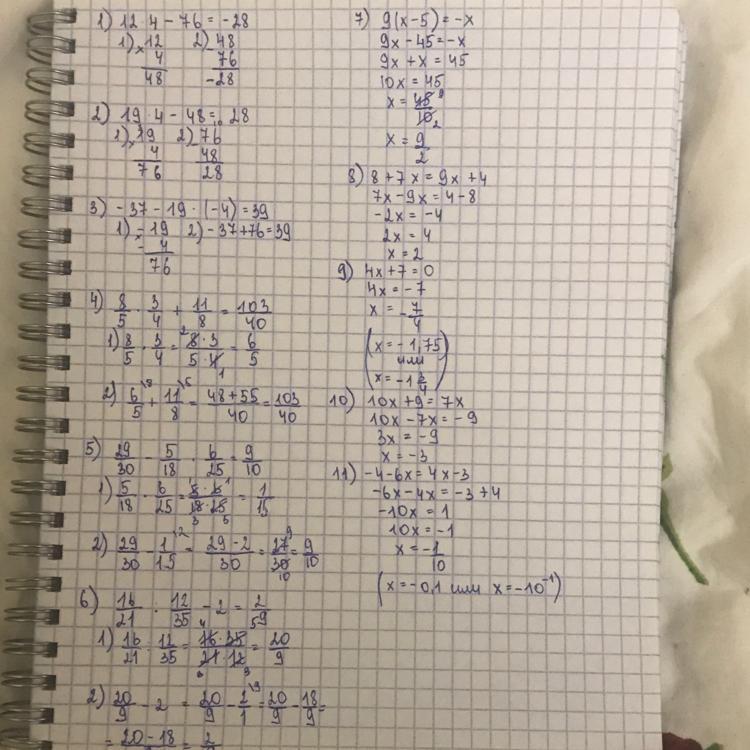 1) 12·4 - 76 = -28
1) × 12 2) - 48
4 76
48 -28
2) 19·4 - 48 = 28
1) × 19 2) - 76
4 48
76 28
3) -37 - 19·(-4) = 39
1) × -19 2) -37+76=39
-4
76
4) 8/5 · 3/4 + 11/8 = 103/40
1) 8/5 · 3/4 = 8·3/5·4 = 6/5
2) 6/5 + 11/8 = 48+55/40 = 103/40
5) 29/30 - 5/18 · 6/25 = 9/10
1) 5/18 · 6/25 = 5·6/18·25 = 1/15
2) 29/30 - 1/15 = 29-2/30 = 27/30 = 9/10
6) 16/21 : 12/35 - 2 = 2/9
1) 16/21 : 12/35 = 16·35/21·12 = 20/9
2) 20/9 - 2 = 20/9 - 2/1 = 20/9 - 18/9 =
= 20-18 = 2
7) 9(x-5) = -x
9x - 45 = -x
9x + x = 45
10x = 45
x = 45/10
x = 9/2
8) 8 + 7x = 9x + 4
7x - 9x = 4 - 8
-2x = -4
2x = 4
x = 2
9) 4x + 7 = 0
4x = -7
x = -7/4
(x = -1,75
или
x = -1 3/4)
10) 10x + 9 = 7x
10x - 7x = -9
3x = -9
x = -3
11) -4 - 6x = 4x - 3
-6x - 4x = -3 + 4
-10x = 1
10x = -1
x = -1/10
(x = -0,1 или x = -10⁻¹)